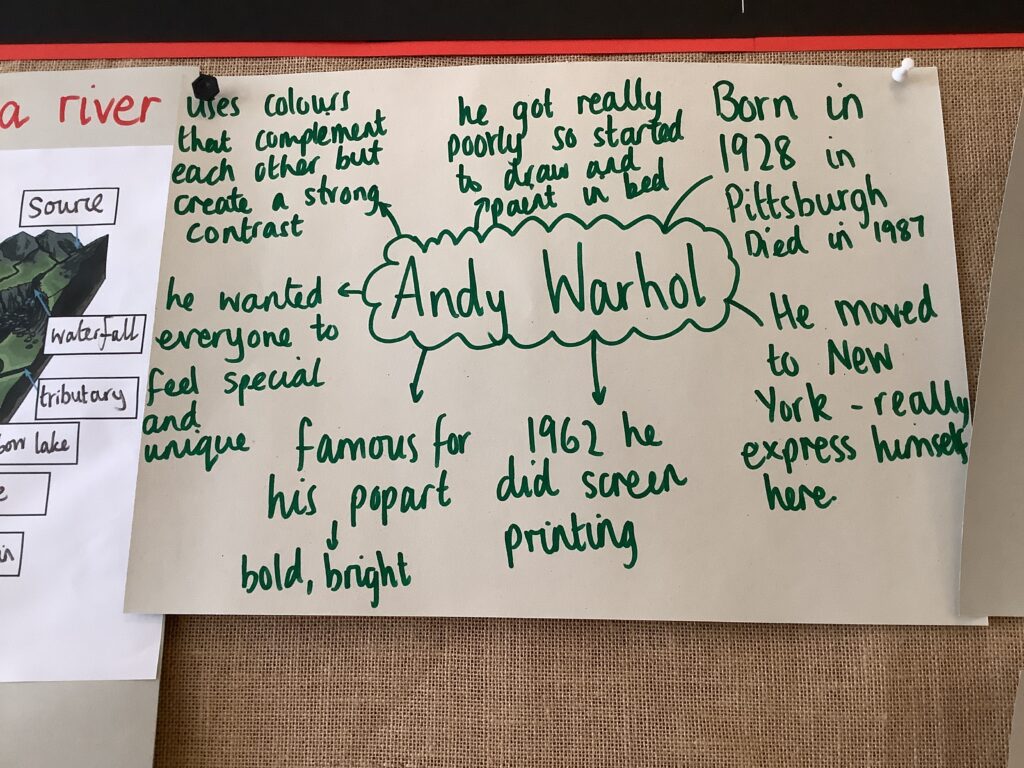 a river
Source
waterfall
tributary
lake
uses colours
that complement
each other but
create a strong
contrast
he got really
poorly so started
to draw and
paint in bed
Born in
1928 in
Pittsburgh
Died in 1987
Andy Warhol
he wanted
everyone to
feel special
and
unique
famous for
his popart
bold, bright
1962 he
did screen
printing
He moved
to New
York - really
express himself
here.